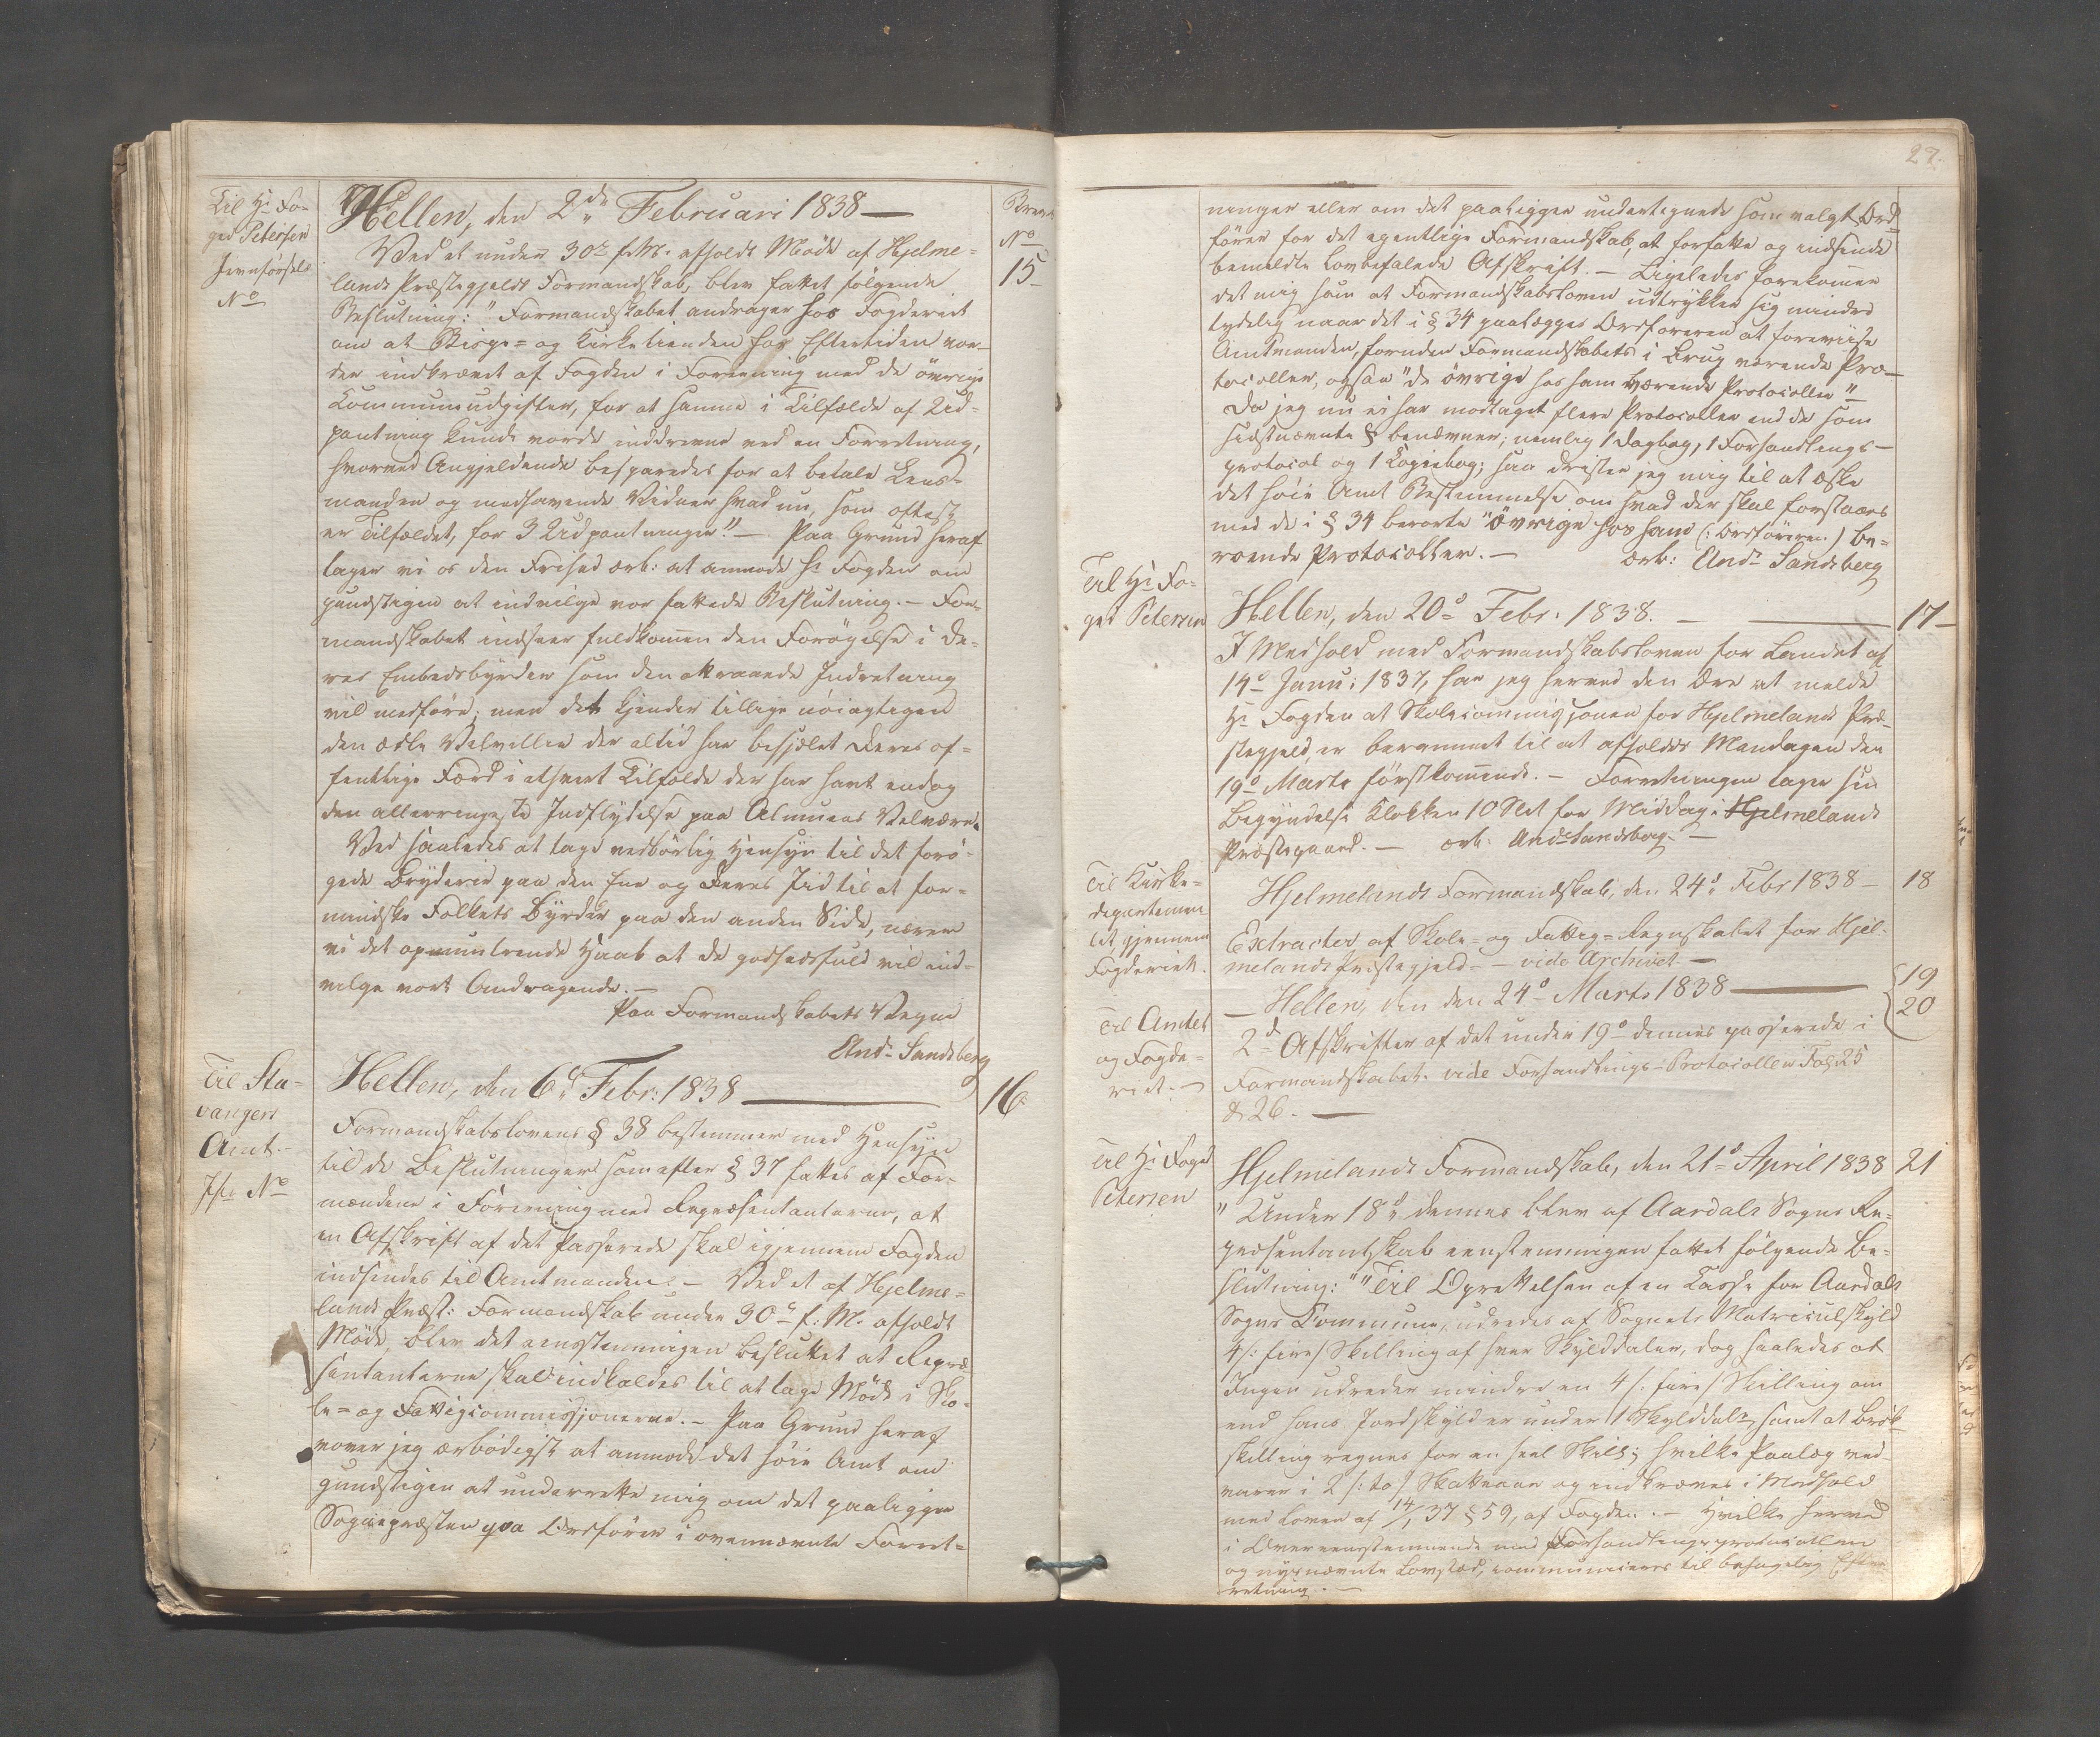 Til Hr Fo-
ged Petersen
Jevnförsels
No
Hellen, den 2de Februari 1838 —
Brev
No
15
Ved et under 30te f. M. afholdt Möde af Hjelme-
lands Præstegjelds Formandskab, blev fattet fölgende
Beslutning: "Formandskabet andrager hos Fogderiet
om at Bisps- og Kirketienden for Eftertiden vor-
der indkrævet af Fogden i Forening med de övrige
Kommuneudgifter, for at samme i Tilfælde af Ud-
pantning kunde vorde inddrevne ved en Forretning,
hvorved Angjeldende besparedes for at betale Lens-
manden og medhavende Vidner hvad nu, som oftest
er Tilfældet, for 3 Udpantninger." — Paa Grund heraf
tager vi os den Frihed ærb: at anmode Hr Fogden om
gundstigen at indvilge vor fattede Beslutning. — For-
mandskabet indseer fuldkommen den Forögelse i De-
res Embedsbyrder som den attraaede Indretning
vil medföre; men det kjender tillige nöiagtigen
den ædle Velvillie der altid har besjælet Deres of-
fentlige Færd i ethvert Tilfælde der har havt endog
den allerringeste Indflydelse paa Almuens Velvære.
Ved saaledes at tage vedbörlig Hensyn til det forö-
gede Bryderie paa den Ene og Deres Iid til at for-
mindske Folkets Byrder paa den anden Side, nærer
vi det opmuntrende Haab at De godhedsfuld vil ind-
vilge vort Andragende. —
Paa Formandskabets Vegne
Ands Sandsberg
Til Sta-
vangers
Amt. —
Jfr No
Hellen, den 6te Febr: 1838 —
16
Formandskabslovens § 38 bestemmer med Hensyn
til de Beslutninger som efter § 37 fattes af For-
mændene i Forening med Repræsentanterne, at
en Afskrift af det Passerede skal igjennem Fogden
indsendes til Amtmanden. — Ved et af Hjelme-
lands Præst: Formandskab under 30te f: M. afholdt
Möde, blev det eenstemmigen besluttet at Repræ-
sentanterne skal indkaldes til at tage Möde i Sko-
le- og Fattigcommissjonerne. — Paa Grund heraf
vover jeg ærbödigst at anmode det höie Amt om
gundstigen at underrette mig om det paaligger
Sognepræsten qva Ordförer i ovennævnte Forret-
27.
ninger eller om det paaligger undertegnede som valgt Ord-
förer for det egentlige Formandskab, at forfatte og indsende
bemeldte lovbefalede Afskrift. — Ligeledes forekommer
det mig som at Formandskabsloven udtrykker sig mindre
tydelig naar det i § 34 paalægges Ordföreren at foreviise
Amtmanden, foruden Formandskabets i Brug værende Pro-
tocoller, ogsaa "de övrige hos ham værende Protocoller"
Da jeg nu ei har modtaget flere Protocoller end de som
sidstnævnte § benævner; nemlig 1 Dagbog, 1 Forhandlings-
protocol og 1 Copiebog; saa drister jeg mig til at æske
det höie Amt Bestemmelse om hvad der skal forstaaes
med de i § 34 berörte "övrige hos ham (: Ordföreren) be-
roende Protocoller. —
ærb: Ands Sandsberg
Til Hr Fo-
ged Petersen
Hellen, den 20de Febr. 1838. —
17
I Medhold med Formandskabsloven for Landet af
14de Janu: 1837, har jeg herved den Ære at melde
Hr Fogden at Skolecommissjonen for Hjelmelands Præ-
stegjeld er berammet til at afholdes Mandagen den
19de Marts förstkommende. — Forretningen tager sin
Begyndelse Klokken 10 Slet for Middag i Hjelmelands
Præstegaard. — ærb. Ands Sandsberg. —
Til Kirke-
departemen-
tet, gjennem
Fogderiet.
Hjelmelands Formandskab, den 24de Febr 1838 —
18
Extracter af Skole- og Fattig-Regnskabet for Hjel-
melands Præstegjeld. — vide Archivet —
Til Amtet
og Fogde-
riet. —
— Hellen, den den 24de Marts 1838 —
19
20
2de Afskrifter af det under 19de dennes passerede i
Formandskabet. vide Forhandlings-Protocollen Fol: 25
& 26. —
Til Hr Foged
Petersen
Hjelmelands Formandskab, den 21de April 1838
21
"Under 18de dennes blev af Aardals Sogns Re-
præsentantskab eenstemmigen fattet fölgende Be-
slutning: ""Til Oprettelsen af en Casse for Aardals
Sogns Commune, udredes af Sognets Matriculskyld
4 /: fire/ Skilling af hver Skylddaler, dog saaledes at
Ingen udreder mindre en 4 /: fire/ Skilling om
end hans Jordskyld er under 1 Skylddalr, samt at Brök-
skilling regnes for en heel Skill; hvilke Paalæg ved-
varer i 2 /: to/ Skatteaar og indkræves i Medhold
med Loven af 14/1 37 § 59, af Fogden. — Hvilke herved
i Overeensstemmende med Forhandlingsprotocollen
og nysnævnte Lovsted, communiceres til behagelig Efter-
retning. —